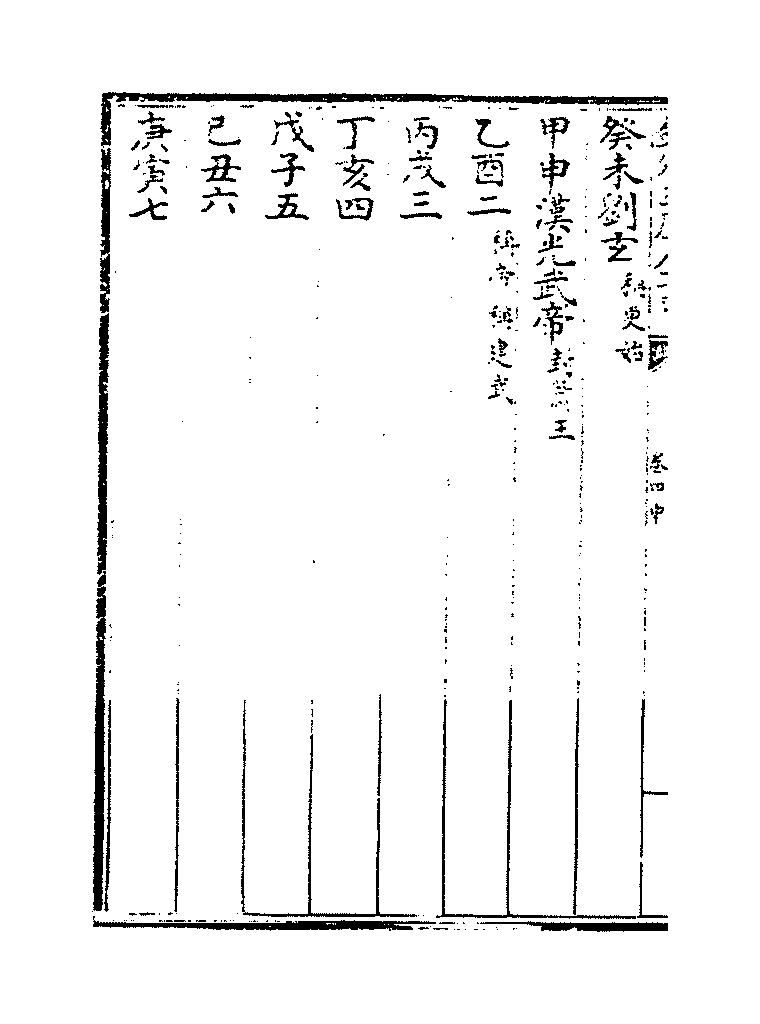 卷四中
癸未劉玄稱更始
甲申漢光武帝封蕭王
乙酉二稱帝稱建武
丙戌三
丁亥四
戊子五
己丑六
庚寅七